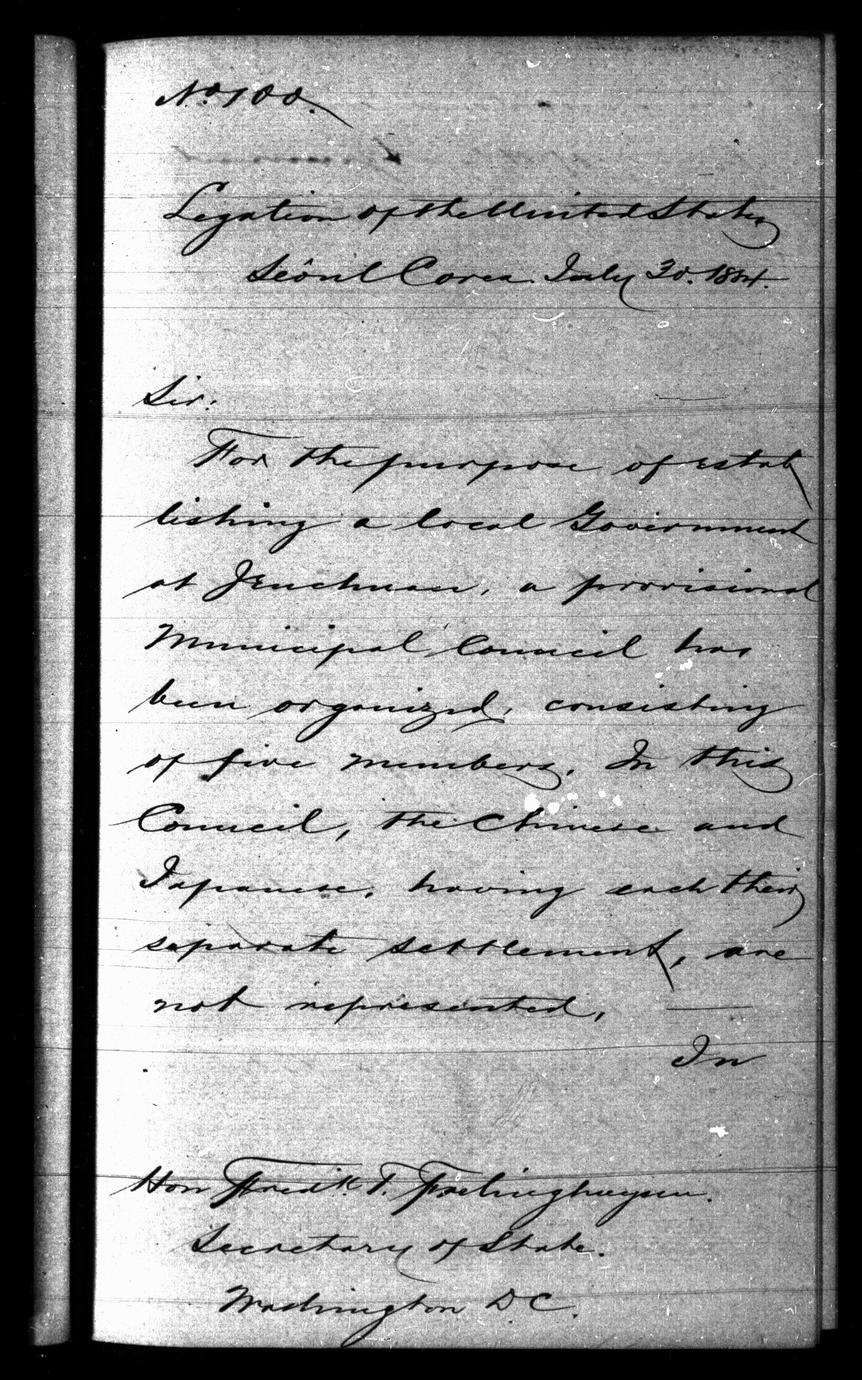 No. 100.
Legation of the United States
Seôul Corea July 30. 1884.
Sir:
For the purpose of estab
lishing a local Government
at Jenchuan, a provisional
Municipal Council has
been organized, consisting
of five members. In this
Council, the Chinese and
Japanese, having each their
separate settlement, are
not represented,
In
Hon Fredk. T. Frelinghuysen.
Secretary of State.
Washington DC.